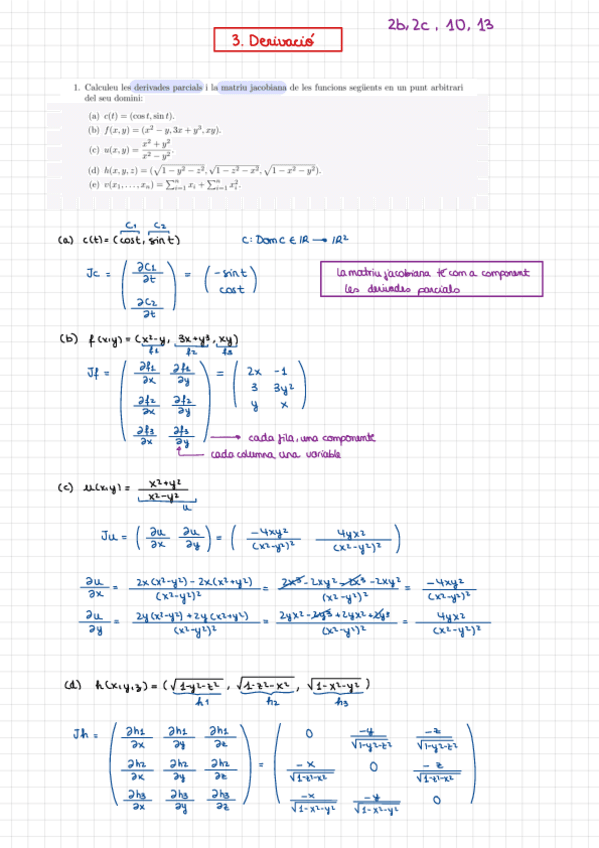 2b, 2c, 10, 13
3. Derivació
1. Calculeu les derivades parcials i la matriu jacobiana de les funcions següents en un punt arbitrari
del seu domini:
(a) c(t) = (cos t, sin t).
(b) f(x, y) = (x² − y, 3x + y³, xy).
(c) u(x, y) = (x² + y²)/(x² − y²).
(d) h(x, y, z) = (√(1 − y² − z²), √(1 − z² − x²), √(1 − x² − y²)).
(e) v(x₁, . . . , xₙ) = ∑ⁿᵢ₌₁ xᵢ + ∑ⁿᵢ₌₁ xᵢ².
C₁ C₂
(a) c(t) = (cost, sint) C: Dom C ∈ IR → IR²
Jc = (∂C₁/∂t ∂C₂/∂t) = (-sint cost)
la matriu jacobiana té com a component
les derivades parcials
(b) f(x,y) = (x²-y, 3x+y³, xy)
f₁ f₂ f₃
Jf = (∂f₁/∂x ∂f₁/∂y ∂f₂/∂x ∂f₂/∂y ∂f₃/∂x ∂f₃/∂y) = (2x -1 3 3y² y x)
→ cada fila, una componente
cada columna una variable
(c) u(x,y) = (x²+y²)/(x²-y²)
u
Ju = (∂u/∂x ∂u/∂y) = (-4xy²/(x²-y²)² 4yx²/(x²-y²)²)
∂u/∂x = (2x(x²-y²) - 2x(x²+y²))/(x²-y²)² = (2x³ - 2xy² - 2x³ - 2xy²)/(x²-y²)² = -4xy²/(x²-y²)²
∂u/∂y = (2y(x²-y²) + 2y(x²+y²))/(x²-y²)² = (2yx² - 2y³ + 2yx² + 2y³)/(x²-y²)² = 4yx²/(x²-y²)²
(d) h(x,y,z) = (√(1-y²-z²), √(1-z²-x²), √(1-x²-y²))
h₁ h₂ h₃
Jh = (∂h₁/∂x ∂h₁/∂y ∂h₁/∂z ∂h₂/∂x ∂h₂/∂y ∂h₂/∂z ∂h₃/∂x ∂h₃/∂y ∂h₃/∂z) = (0 -y/√(1-y²-z²) -z/√(1-y²-z²) -x/√(1-z²-x²) 0 -z/√(1-z²-x²) -x/√(1-x²-y²) -y/√(1-x²-y²) 0)